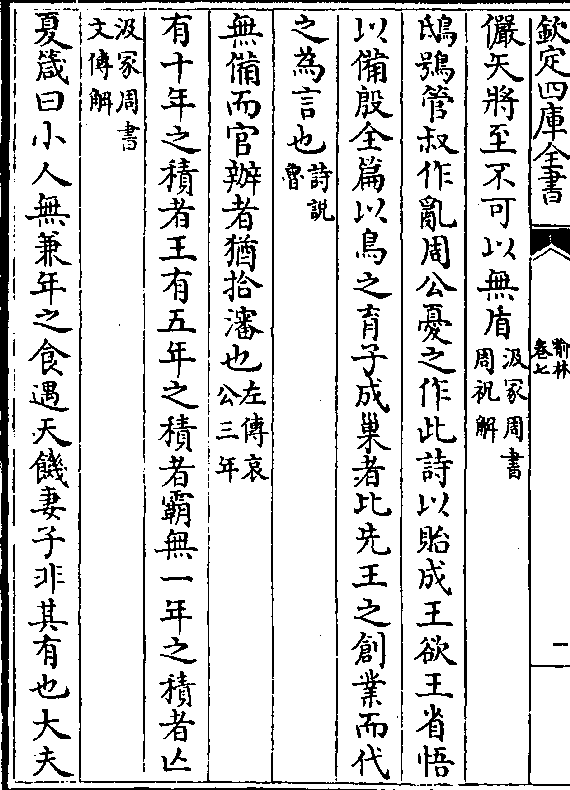 欽定四庫全書
喻林
卷七
一
儼矢將至不可以無盾汲冢周書
周祝解
鴟鴞管叔作亂周公憂之作此詩以貽成王欲王省悟
以備殷全篇以鳥之育子成巢者比先王之創業而代
之為言也詩説
魯
無備而官辦者猶拾瀋也左傳哀
公三年
有十年之積者王有五年之積者霸無一年之積者亾
汲冢周書
文傳解
夏箴曰小人無兼年之食遇天饑妻子非其有也大夫